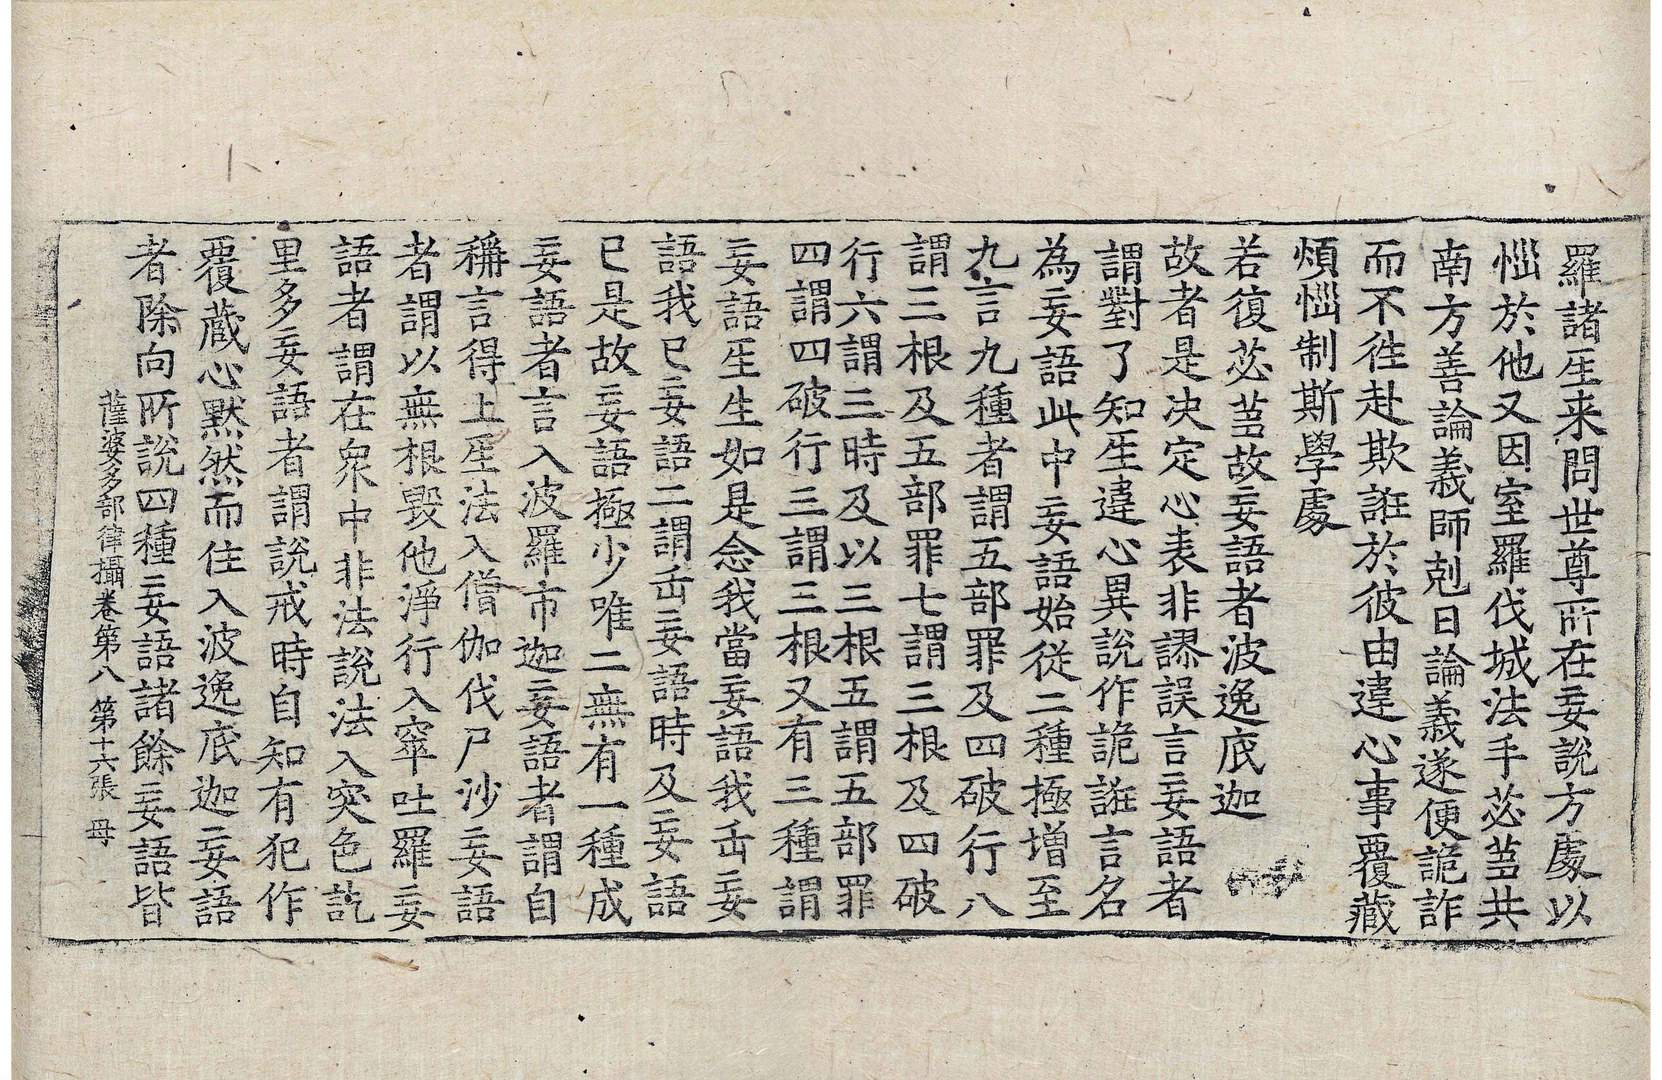 羅諸𤯔来問世尊所在妄說方處以
惱於他又因室羅伐城法手苾蒭共
南方善論義師剋日論義遂便詭詐
而不徃赴欺誑於彼由違心事覆藏
煩惱制斯學處
若復苾蒭故妄語者波逸底迦
故者是决定心表非謬誤言妄語者
謂對了知𤯔違心異說作詭誑言名
為妄語此中妄語始從二種極增至
九言九種者謂五部罪及四破行八
謂三根及五部罪七謂三根及四破
行六謂三時及以三根五謂五部罪
四謂四破行三謂三根又有三種謂
妄語𤯔生如是念我當妄語我缶妄
語我已妄語二謂缶妄語時及妄語
已是故妄語極少唯二無有一種成
妄語者言入波羅市迦妄語者謂自
稱言得上𤯔法入僧伽伐尸沙妄語
者謂以無根毀他淨行入窣吐羅妄
語者謂在衆中非法說法入突色訖
里多妄語者謂說戒時自知有犯作
覆藏心默然而住入波逸底迦妄語
者除向所說四種妄語諸餘妄語皆
薩婆多部律攝卷第八 第十六張 母